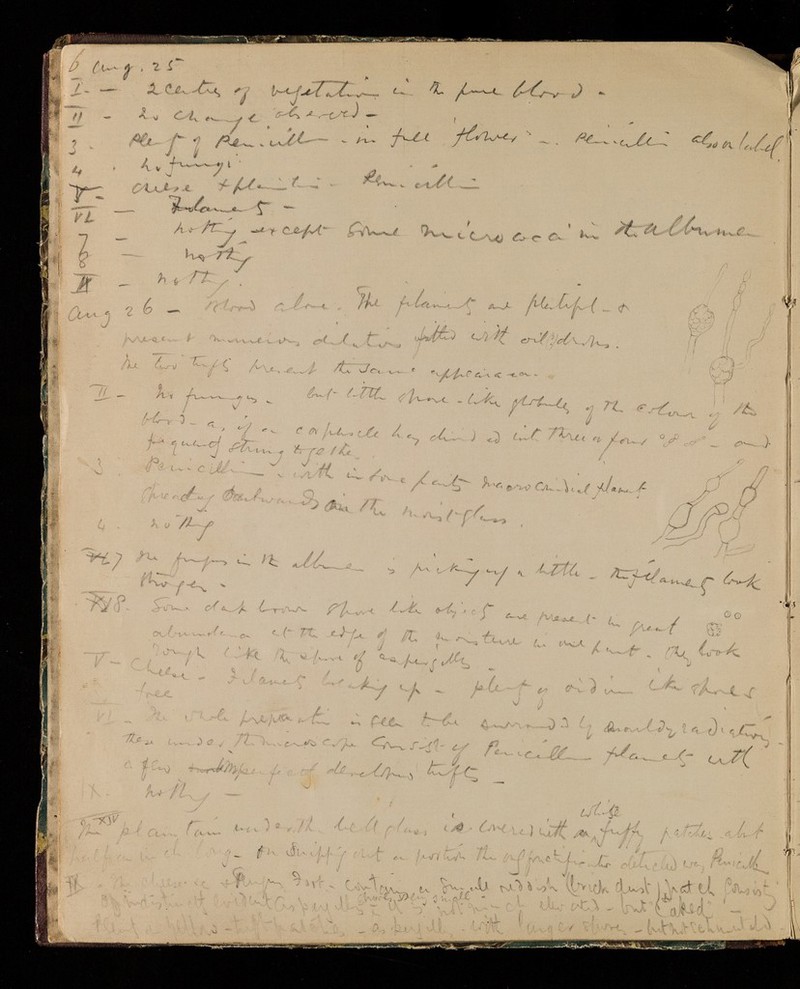 6 Aug. 25
I. — 2 centres of vegetation in the pure blood -
II - No change observed -
3 - Plenty of Penicillium - in full flower - Penicillium also on label.
4 . No fungi
V - Cheese + plantain - Penicillium
VI — Filaments -
7 — nothing except some micrococci in the albumen
8 — nothing
IX — nothing.
Aug 26 — Blood alone. The filaments are plentiful - &
present numerous dilations filled with oil drops.
The two tufts present the same appearance.
II - No funguses - but little spore-like globules of the colour of the
blood - as if a corpuscle has divided into three or four - and
frequently strung together.
3 Penicillium - with in some parts macroconidial filaments
spreading on the moist glass.
4 . nothing
7 The fungus in the albumen is picking up a little - The filaments look
stronger -
8. Some dark brown spore like objects are present in great
abundance at the edge of the moisture in one part. They look
rough like the spore of aspergillus -
V - Cheese - Filaments breaking up - plenty of oidium like spores
free
VI - The whole preparation is seen to be surrounded by mouldy radiations
These under the microscope consist of Penicillium filaments with
a few imperfect developed tufts -
IX. nothing —
The XIV plantain under the bell glass is covered with white fluffy patches about
half an inch long - On snipping out a portion the organ of fructification detected was Penicill
contains a single reddish (brick dust) patch consist
evident aspergillus elevated - but caked
yellow - tuft patches - aspergill. - with larger spores -